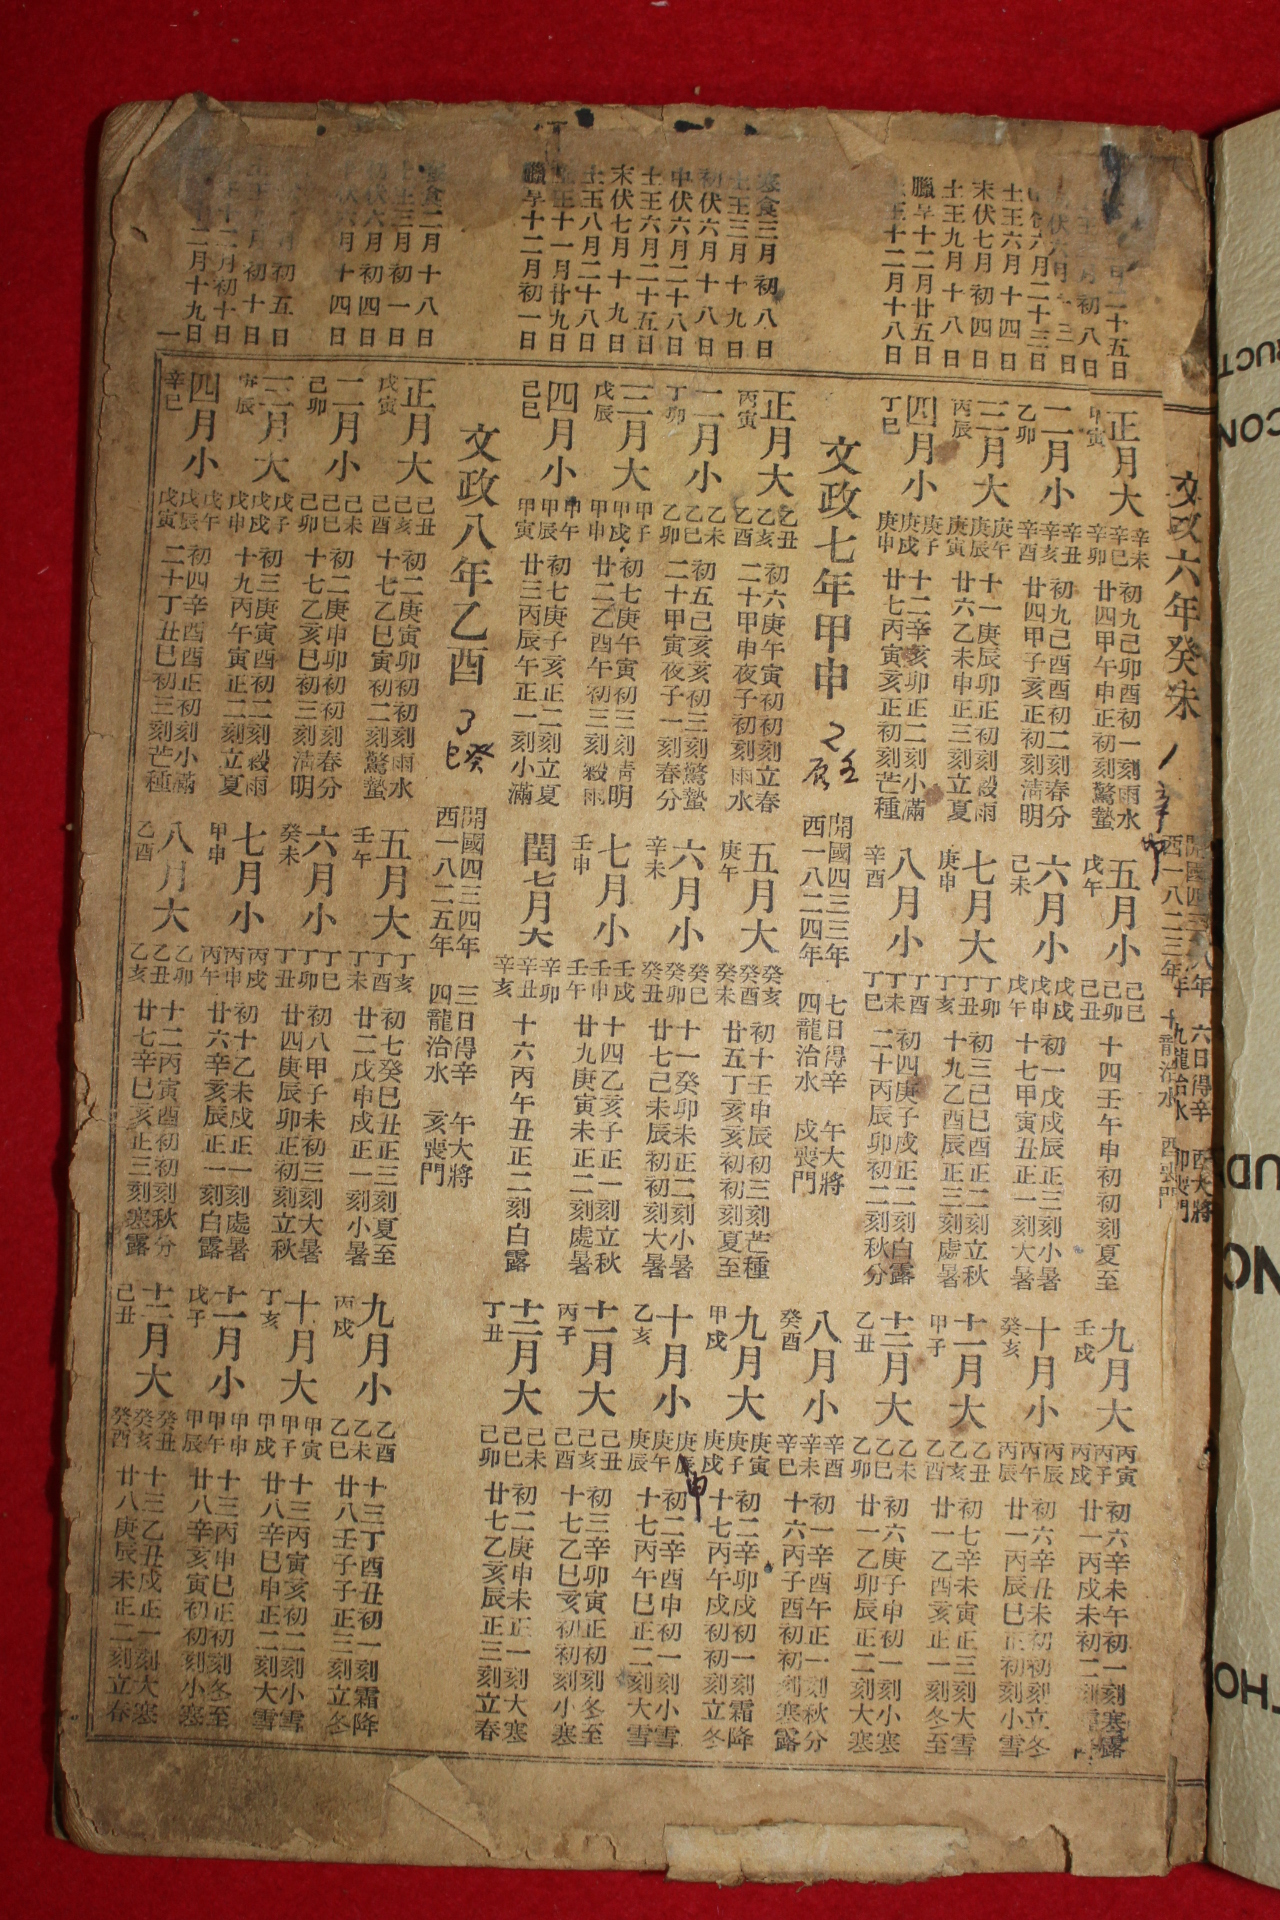 二十五日
初八日
三日
伏六月二十三日
土王六月十四日
末伏七月初四日
土王九月十八日
臘享十二月廿五日
土王十二月十八日
寒食三月初八日
土王三月十九日
初伏六月十八日
中伏六月二十八日
土王六月二十五日
末伏七月十九日
土王八月二十八日
十一月廿九日
臘享十二月初一日
寒食二月十八日
土王三月初一日
初伏六月初四日
六月十四日
初五日
月初十日
十二月初十日
二月十九日
一
文政六年癸未
1 辛卯
開國四三二年
西一八二三年
六日得辛
九龍治水
酉大將
卯喪門
正月大 甲寅
辛未 辛巳 辛卯
初九己卯酉初一刻雨水
廿四甲午申正初刻驚蟄
二月小 乙卯
辛丑 辛亥 辛酉
初九己酉酉初二刻春分
廿四甲子亥正初刻淸明
三月大 丙辰
庚午 庚辰 庚寅
十一庚辰卯正初刻穀雨
廿六乙未申正三刻立夏
四月小 丁巳
庚子 庚戌 庚申
十二辛亥卯正二刻小滿
廿七丙寅亥正初刻芒種
五月小 戊午
己巳 己卯 己丑
十四壬午申初初刻夏至
六月小 己未
戊戌 戊申 戊午
初一戊戌辰正三刻小暑
十七甲寅丑正一刻大暑
七月大 庚申
丁卯 丁丑 丁亥
初三己巳酉正二刻立秋
十九乙酉辰正三刻處暑
八月小 辛酉
丁酉 丁未 丁巳
初四庚子戌正二刻白露
二十丙辰卯初二刻秋分
九月大 壬戌
丙寅 丙子 丙戌
初六辛未午初一刻寒露
廿一丙戌未初二刻
十月小 癸亥
丙辰 丙午 丙辰
初六辛丑未初初刻立冬
廿一丙辰巳正初刻小雪
十一月大 甲子
乙丑 乙亥 乙酉
初七辛未寅正三刻大雪
廿一乙酉亥正一刻冬至
十二月大 乙丑
乙未 乙巳 乙卯
初六庚子申初一刻小寒
廿一乙卯辰正二刻大寒
文政七年甲申
2 壬辰
開國四三三年
西一八二四年
七日得辛
四龍治水
午大將
戌喪門
正月大 丙寅
乙丑 乙亥 乙酉
初六庚午寅初初刻立春
二十甲申夜子初刻雨水
二月小 丁卯
乙未 乙巳 乙卯
初五己亥亥初三刻驚蟄
二十甲寅夜子一刻春分
三月大 戊辰
甲子 甲戌 甲申
初七庚午寅初三刻淸明
廿二乙酉午初三刻穀雨
四月小 己巳
甲午 甲辰 甲寅
初七庚子亥正二刻立夏
廿三丙辰午正一刻小滿
五月大 庚午
癸亥 癸酉 癸未
初十壬申辰初三刻芒種
廿五丁亥亥初初刻夏至
六月小 辛未
癸巳 癸卯 癸丑
十一癸卯未正二刻小暑
廿七己未辰初初刻大暑
七月小 壬申
壬戌 壬申 壬午
十四乙亥子正一刻立秋
廿九庚寅未正二刻處暑
閏七月大
辛卯 辛丑 辛亥
十六丙午丑正二刻白露
八月小 癸酉
辛酉 辛未 辛巳
初一辛酉午正一刻秋分
十六丙子酉初初刻寒露
九月大 甲戌
庚寅 庚子 庚戌
初二辛卯戌初一刻霜降
十七丙午戌初初刻立冬
十月小 乙亥
庚辰 申 庚午 庚辰
初二辛酉申初一刻小雪
十七丙午巳正二刻大雪
十一月大 丙子
己丑 己亥 己酉
初三辛卯寅正初刻冬至
十七乙巳亥初初刻小寒
十二月大 丁丑
己未 己巳 己卯
初二庚申未正一刻大寒
廿七乙亥辰正三刻立春
文政八年乙酉
3 癸巳
開國四三四年
西一八二五年
三日得辛
四龍治水
午大將
亥喪門
正月大 戊寅
己丑 己亥 己酉
初二庚寅卯初初刻雨水
十七乙巳寅初二刻驚蟄
二月小 己卯
己未 己巳 己卯
初二庚申卯初初刻春分
十七乙亥巳初三刻淸明
三月大 庚辰
戊子 戊戌 戊申
初三庚寅酉初二刻穀雨
十九丙午寅正二刻立夏
四月小 辛巳
戊午 戊辰 戊寅
初四辛酉酉正初刻小滿
二十丁丑巳初三刻芒種
五月大 壬午
丁亥 丁酉 丁未
初七癸巳丑正三刻夏至
廿二戊申戌正一刻小暑
六月小 癸未
丁巳 丁卯 丁丑
初八甲子未初三刻大暑
廿四庚辰卯正初刻立秋
七月小 甲申
丙戌 丙申 丙午
初十乙未戌正一刻處暑
廿六辛亥辰正一刻白露
八月大 乙酉
乙卯 乙丑 乙亥
十二丙寅酉初初刻秋分
廿七辛巳亥正三刻寒露
九月小 丙戌
乙酉 乙未 乙巳
十三丁酉丑初一刻霜降
廿八壬子子正三刻立冬
十月大 丁亥
甲寅 甲子 甲戌
十三丙寅亥初二刻小雪
廿八辛巳申正二刻大雪
十一月小 戊子
甲申 甲午 甲辰
十三丙申巳正初刻冬至
廿八辛亥寅初初刻小寒
十二月大 己丑
癸丑 癸亥 癸酉
十三乙丑戌正一刻大寒
廿八庚辰未正二刻立春